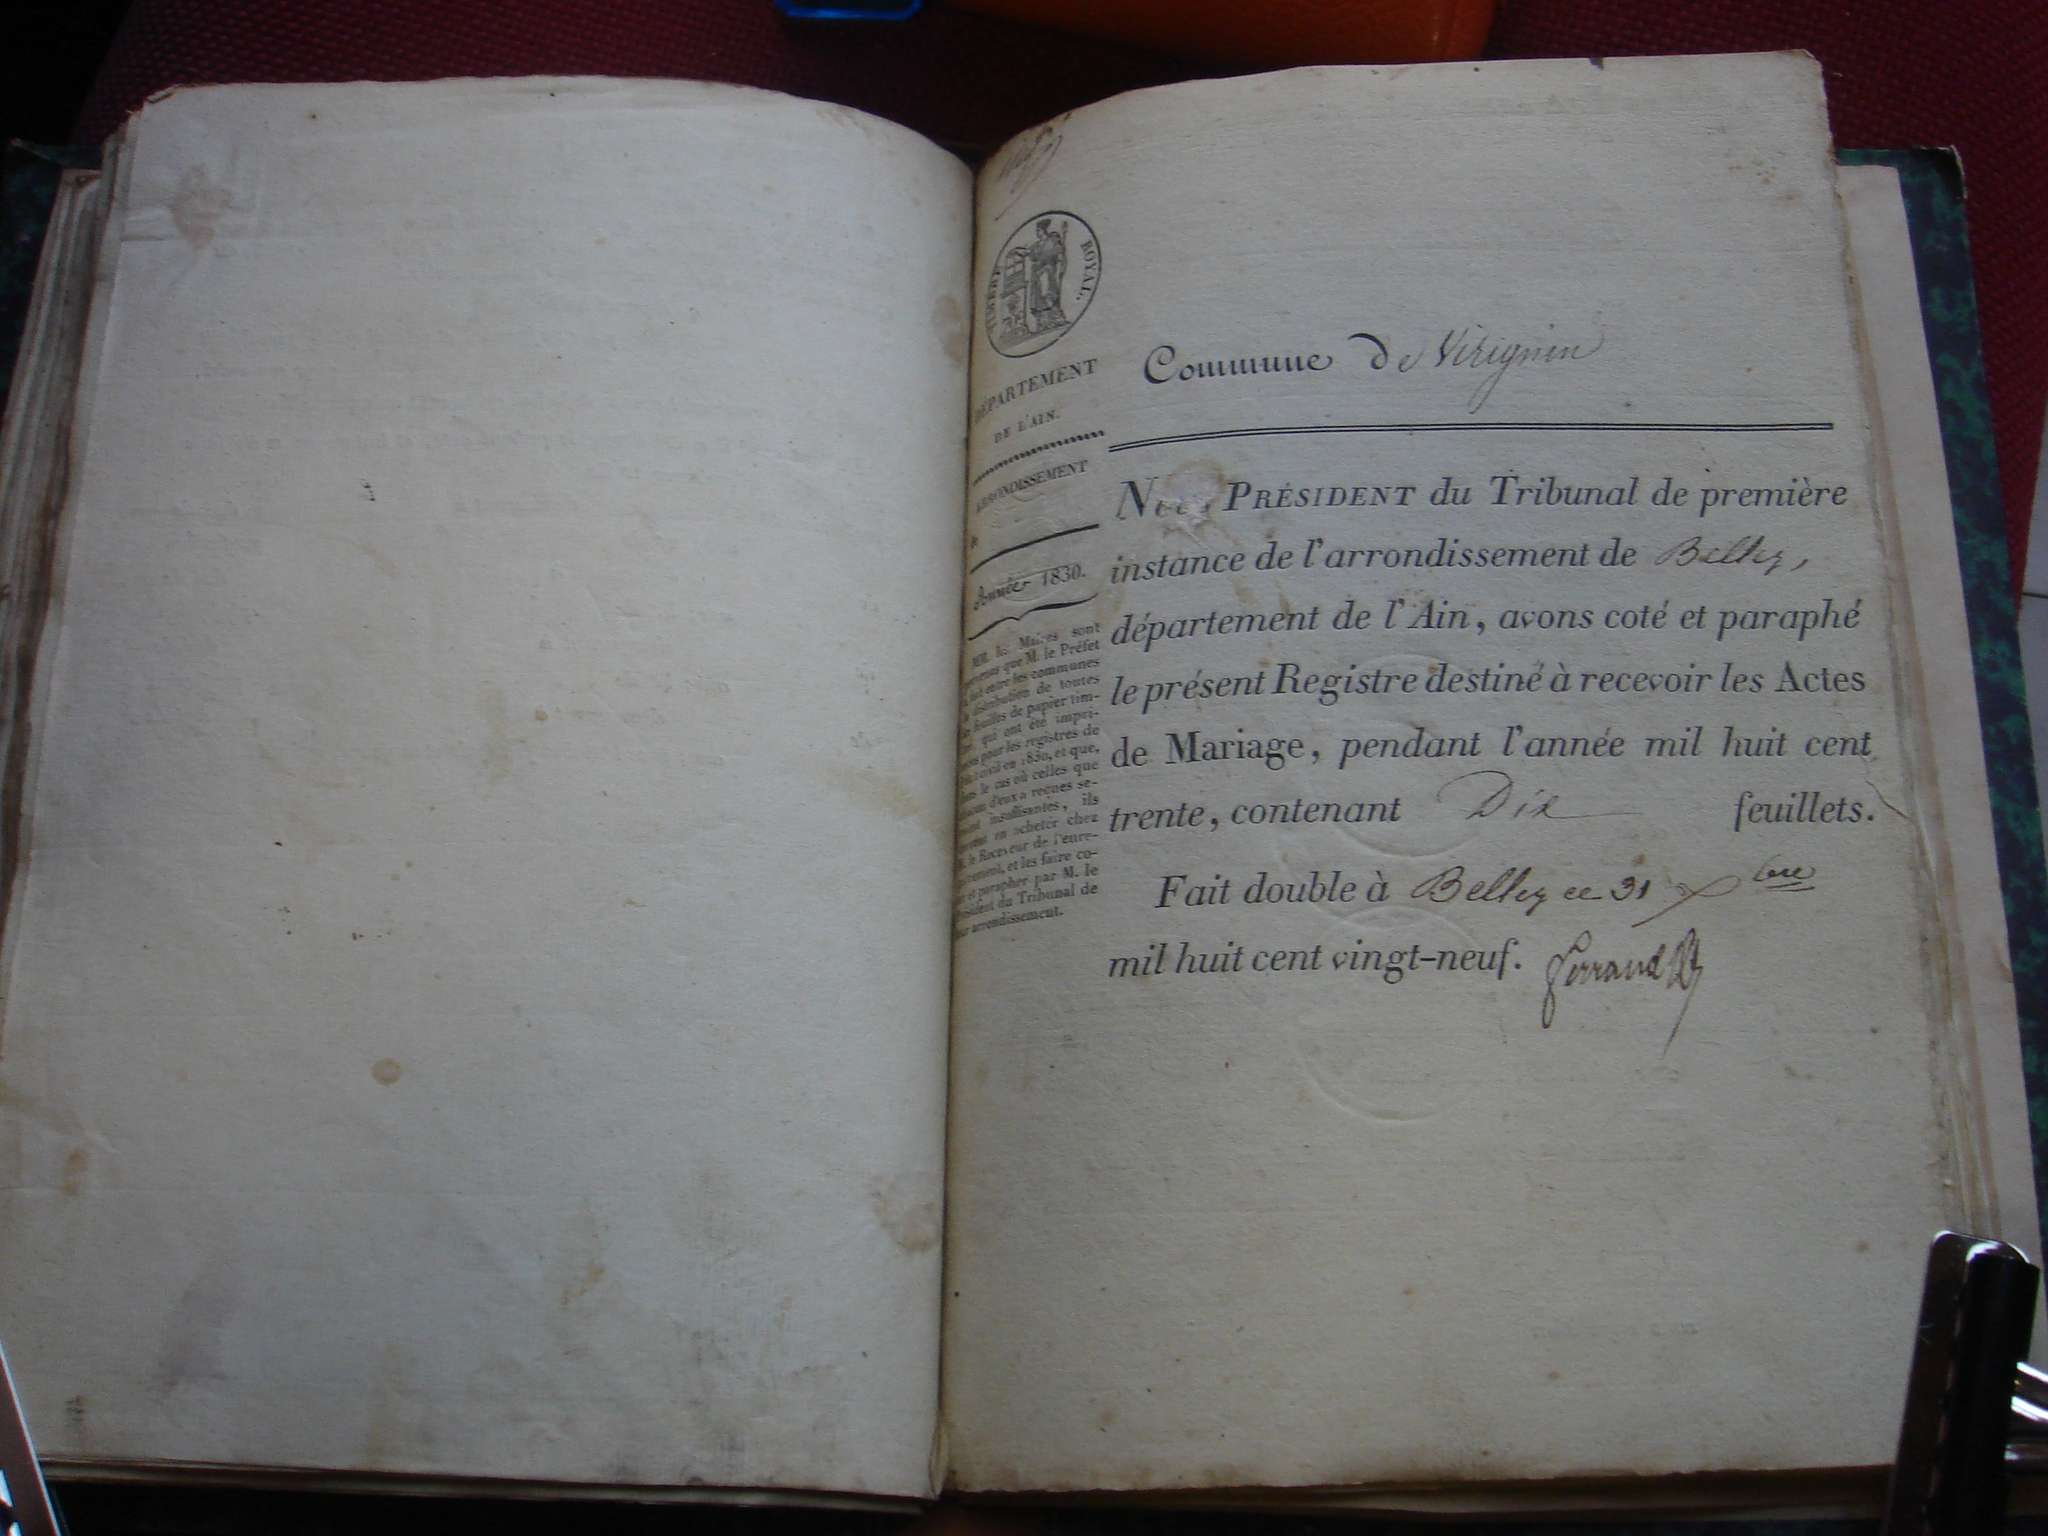 TIMBRE ROYAL.
DÉPARTEMENT
DE L'AIN.
ARRONDISSEMENT
de
Année 1830.
MM. les Maires sont
prévenus que M. le Préfet
a fait entre les communes
la distribution de toutes
les feuilles de papier tim-
bré qui ont été impri-
mées pour les registres de
l'état civil en 1830, et que,
dans le cas où celles que
chacun d'eux a reçues se-
raient insuffisantes, ils
devront en acheter chez
M. le Receveur de l'enre-
gistrement, et les faire co-
ter et parapher par M. le
Président du Tribunal de
leur arrondissement.
Commune de Virignin
Nous, PRÉSIDENT du Tribunal de première
instance de l'arrondissement de Belley,
département de l'Ain, avons coté et paraphé
le présent Registre destiné à recevoir les Actes
de Mariage, pendant l'année mil huit cent
trente, contenant Dix feuillets.
Fait double à Belley ce 31 Xbre
mil huit cent vingt-neuf. Ferrand